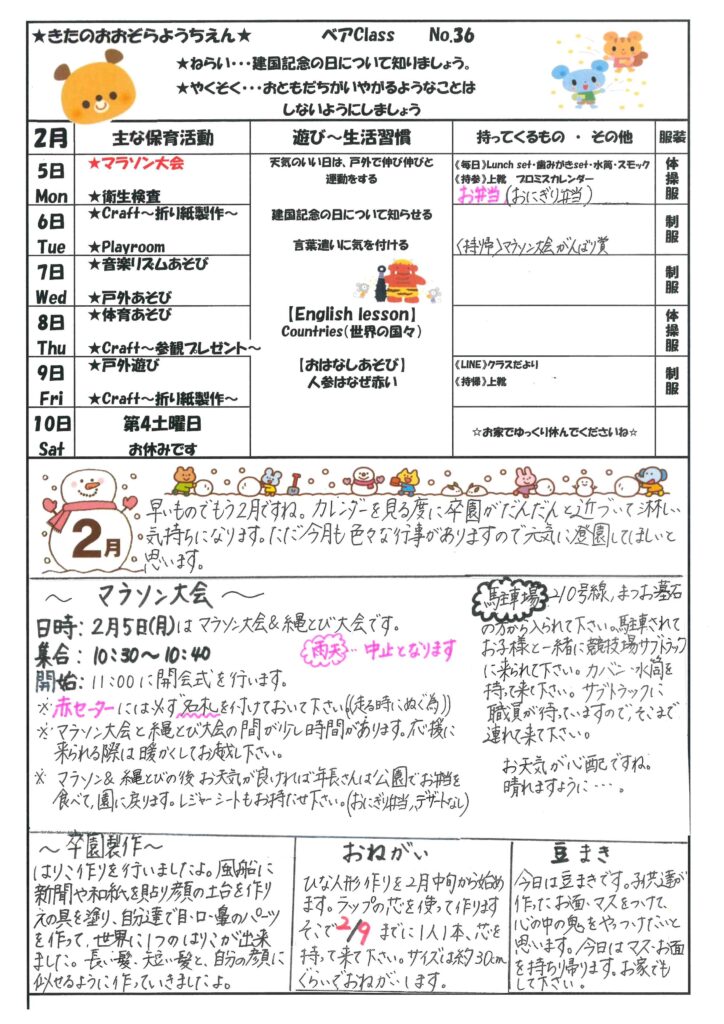 ★きたのおおぞらようちえん★ ベアClass No.36
★ねらい・・・建国記念の日について知りましょう。
★やくそく・・・おともだちがいやがるようなことは
しないようにしましょう
2月 主な保育活動 遊び～生活習慣 持ってくるもの ・ その他 服装
5日 Mon
★マラソン大会
★衛生検査
天気のいい日は、戸外で伸び伸びと
運動をする
《毎日》Lunch set・歯みがきset・水筒・スモック
《持参》上靴 プロミスカレンダー
お弁当(おにぎり弁当)
体操服
6日 Tue
★Craft～折り紙製作～
★Playroom
建国記念の日について知らせる
言葉遣いに気を付ける
〈持ち帰〉マラソン大会がんばり賞
制服
7日 Wed
★音楽リズムあそび
★戸外あそび
制服
8日 Thu
★体育あそび
★Craft～参観プレゼント～
【English lesson】
Countries(世界の国々)
体操服
9日 Fri
★戸外遊び
★Craft～折り紙製作～
【おはなしあそび】
人参はなぜ赤い
《LINE》クラスだより
《持帰》上靴
制服
10日 Sat
第4土曜日
お休みです
☆お家でゆっくり休んでくださいね☆
2月
早いものでもう2月ですね。カレンダーを見る度に卒園がだんだんと近づいて淋しい
気持ちになります。ただ今月も色々な行事がありますので元気に登園してほしいと
思います。
～ マラソン大会 ～
日時: 2月5日(月)は マラソン大会&縄とび大会です。
集合: 10:30～10:40
雨天… 中止となります
開始: 11:00に開会式を行います。
※赤セーターには必ず名札を付けておいて下さい((走る時にぬぐ為))
※マラソン大会と縄とび大会の間が少し時間があります。応援に
来られる際は暖かくしてお越し下さい。
※ マラソン&縄とびの後お天気が良ければ年長さんは公園でお弁当を
食べて、園に戻ります。レジャーシートもお持たせ下さい。(おにぎり弁当、デザートなし)
駐車場 210号線、まつお墓石
の方から入られて下さい。駐車されて
お子様と一緒に競技場サブトラック
に来られて下さい。カバン・水筒を
持って来て下さい。サブトラックに
職員が待っていますので、そこまで
連れて来て下さい。
お天気が心配ですね。
晴れますように・・・。
～ 卒園製作～
はりこ作りを行いましたよ。風船に
新聞や和紙を貼り顔の土台を作り
えの具を塗り、自分達で目・口・鼻のパーツ
を作って、世界に1つのはりこが出来
ました。長い髪、短い髪と、自分の顔に
似せるように作っていきましたよ。
おねがい
ひな人形作りを2月中旬から始め
ます。ラップの芯を使って作ります
そこで2/9までに1人1本、芯を
持って来て下さい。サイズは約30cm
くらいでおねがいします。
豆まき
今日は豆まきです。子供達が
作ったお面・マスをつけて、
心の中の鬼をやっつけたいと
思います。今日はマス・お面
を持ち帰ります。お家でも
して下さい。